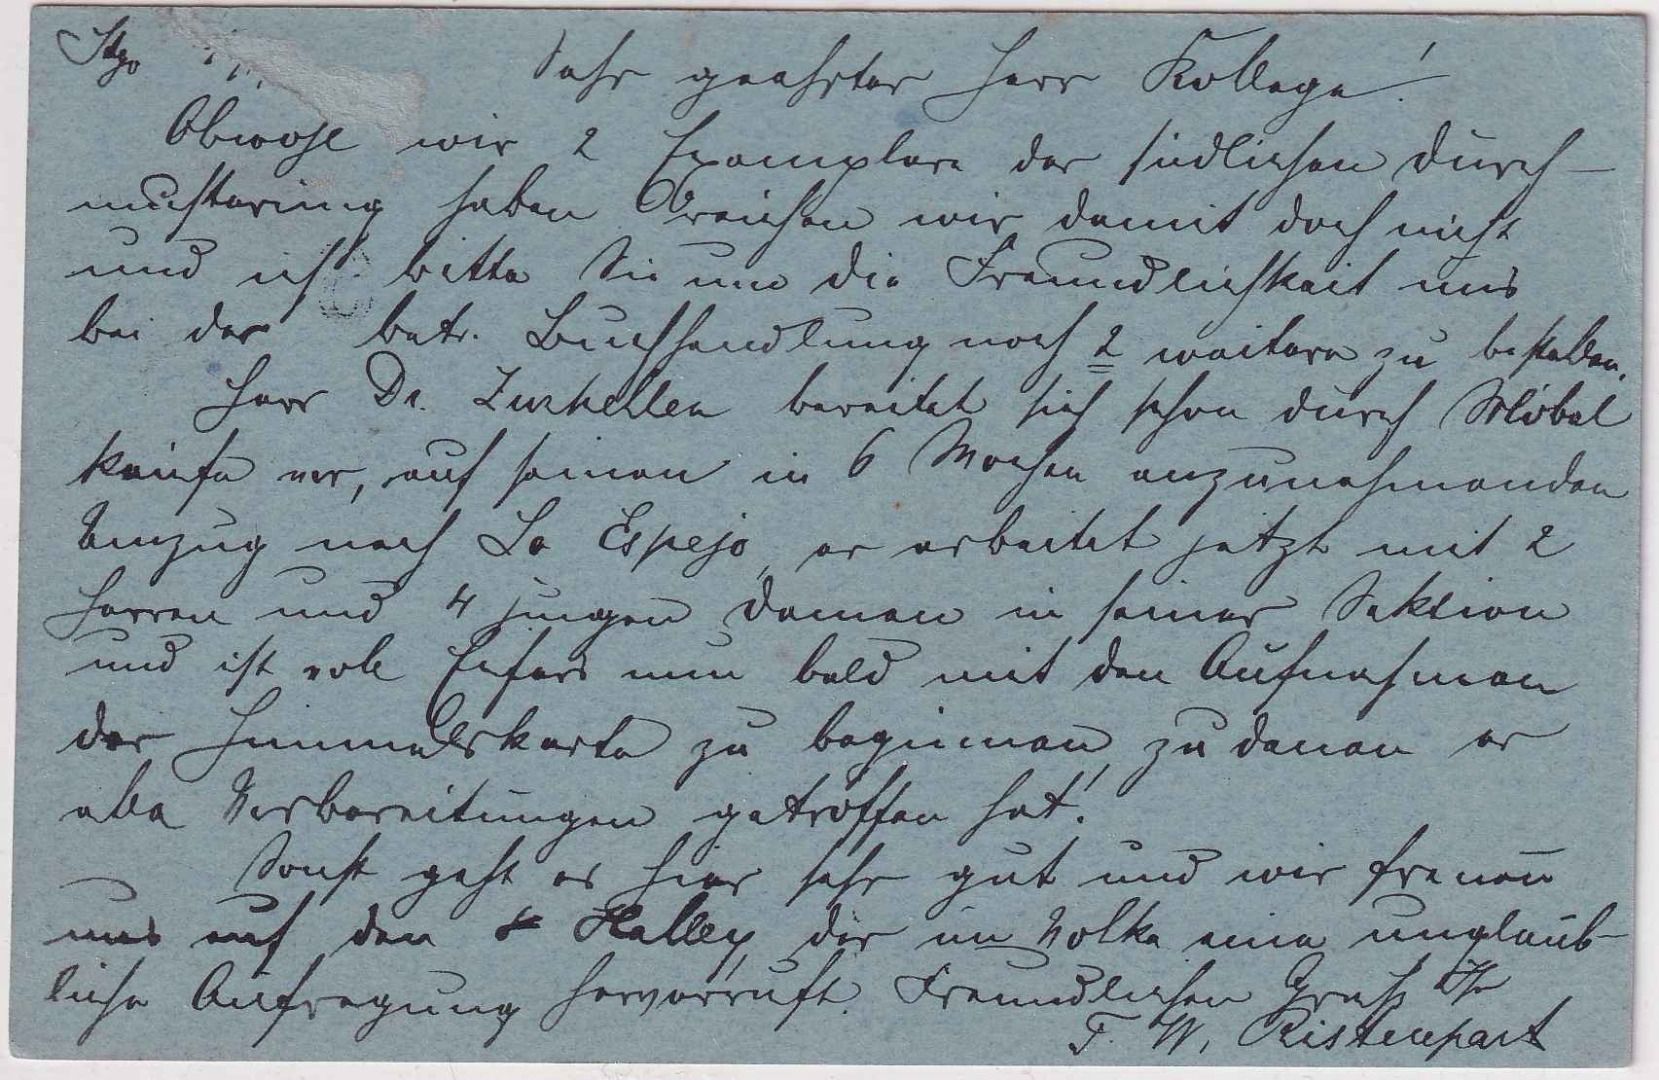 Stgo
Sehr geehrter Herr Kollege!
Obwohl wir 2 Exemplare der südlichen Durch-
musterung haben reichen wir damit doch nicht
und ich bitte Sie um die Freundlichkeit uns
bei der betr. Buchhandlung noch 2 weitere zu bestellen.
Herr Dr. Zurhellen bereitet sich schon durch Möbel
käufe vor, auf seinen in 6 Wochen anzunehmenden
Umzug nach Lo Espejo, er arbeitet jetzt mit 2
Herren und 4 jungen Damen in seiner Sektion
und ist voll Eifers nun bald mit den Aufnahmen
der Himmelskarte zu beginnen, zu denen er
alle Vorbereitungen getroffen hat!
Sonst geht es hier sehr gut und wir freuen
uns auf den Halley, der im Volke eine unglaub-
liche Aufregung hervorruft. Freundlichen Gruß Ihr
F. W. Ristenpart